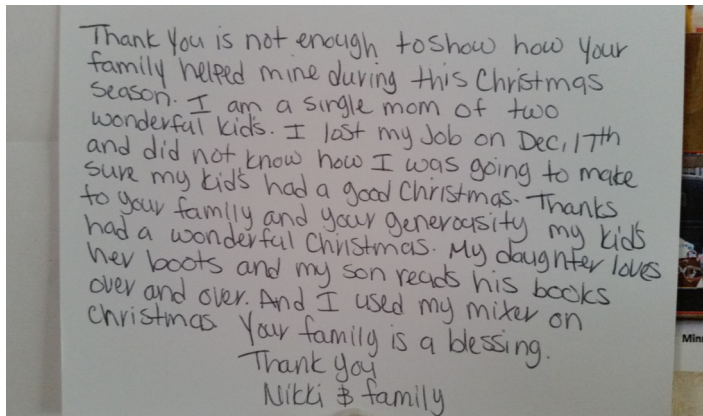 Thank you is not enough to show how your
family helped mine during this Christmas
season. I am a single mom of two
wonderful kids. I lost my Job on Dec, 17th
and did not know how I was going to make
sure my kids had a good Christmas. Thanks
to your family and your generousity my kids
had a wonderful Christmas. My daughter loves
her boots and my son reads his books
over and over. And I used my mixer on
Christmas Your family is a blessing.
Thank you
Nikki B family
Minn